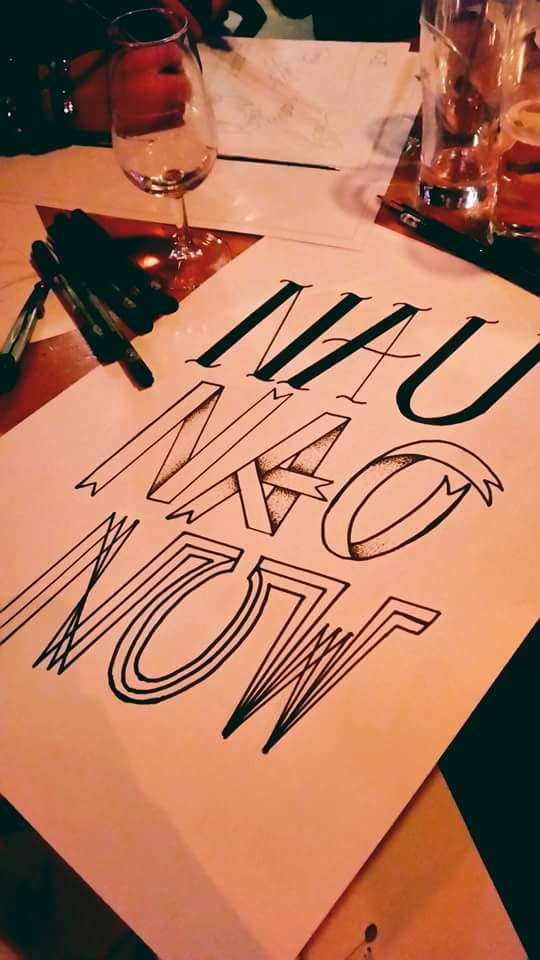 NAU
NAO
NOW